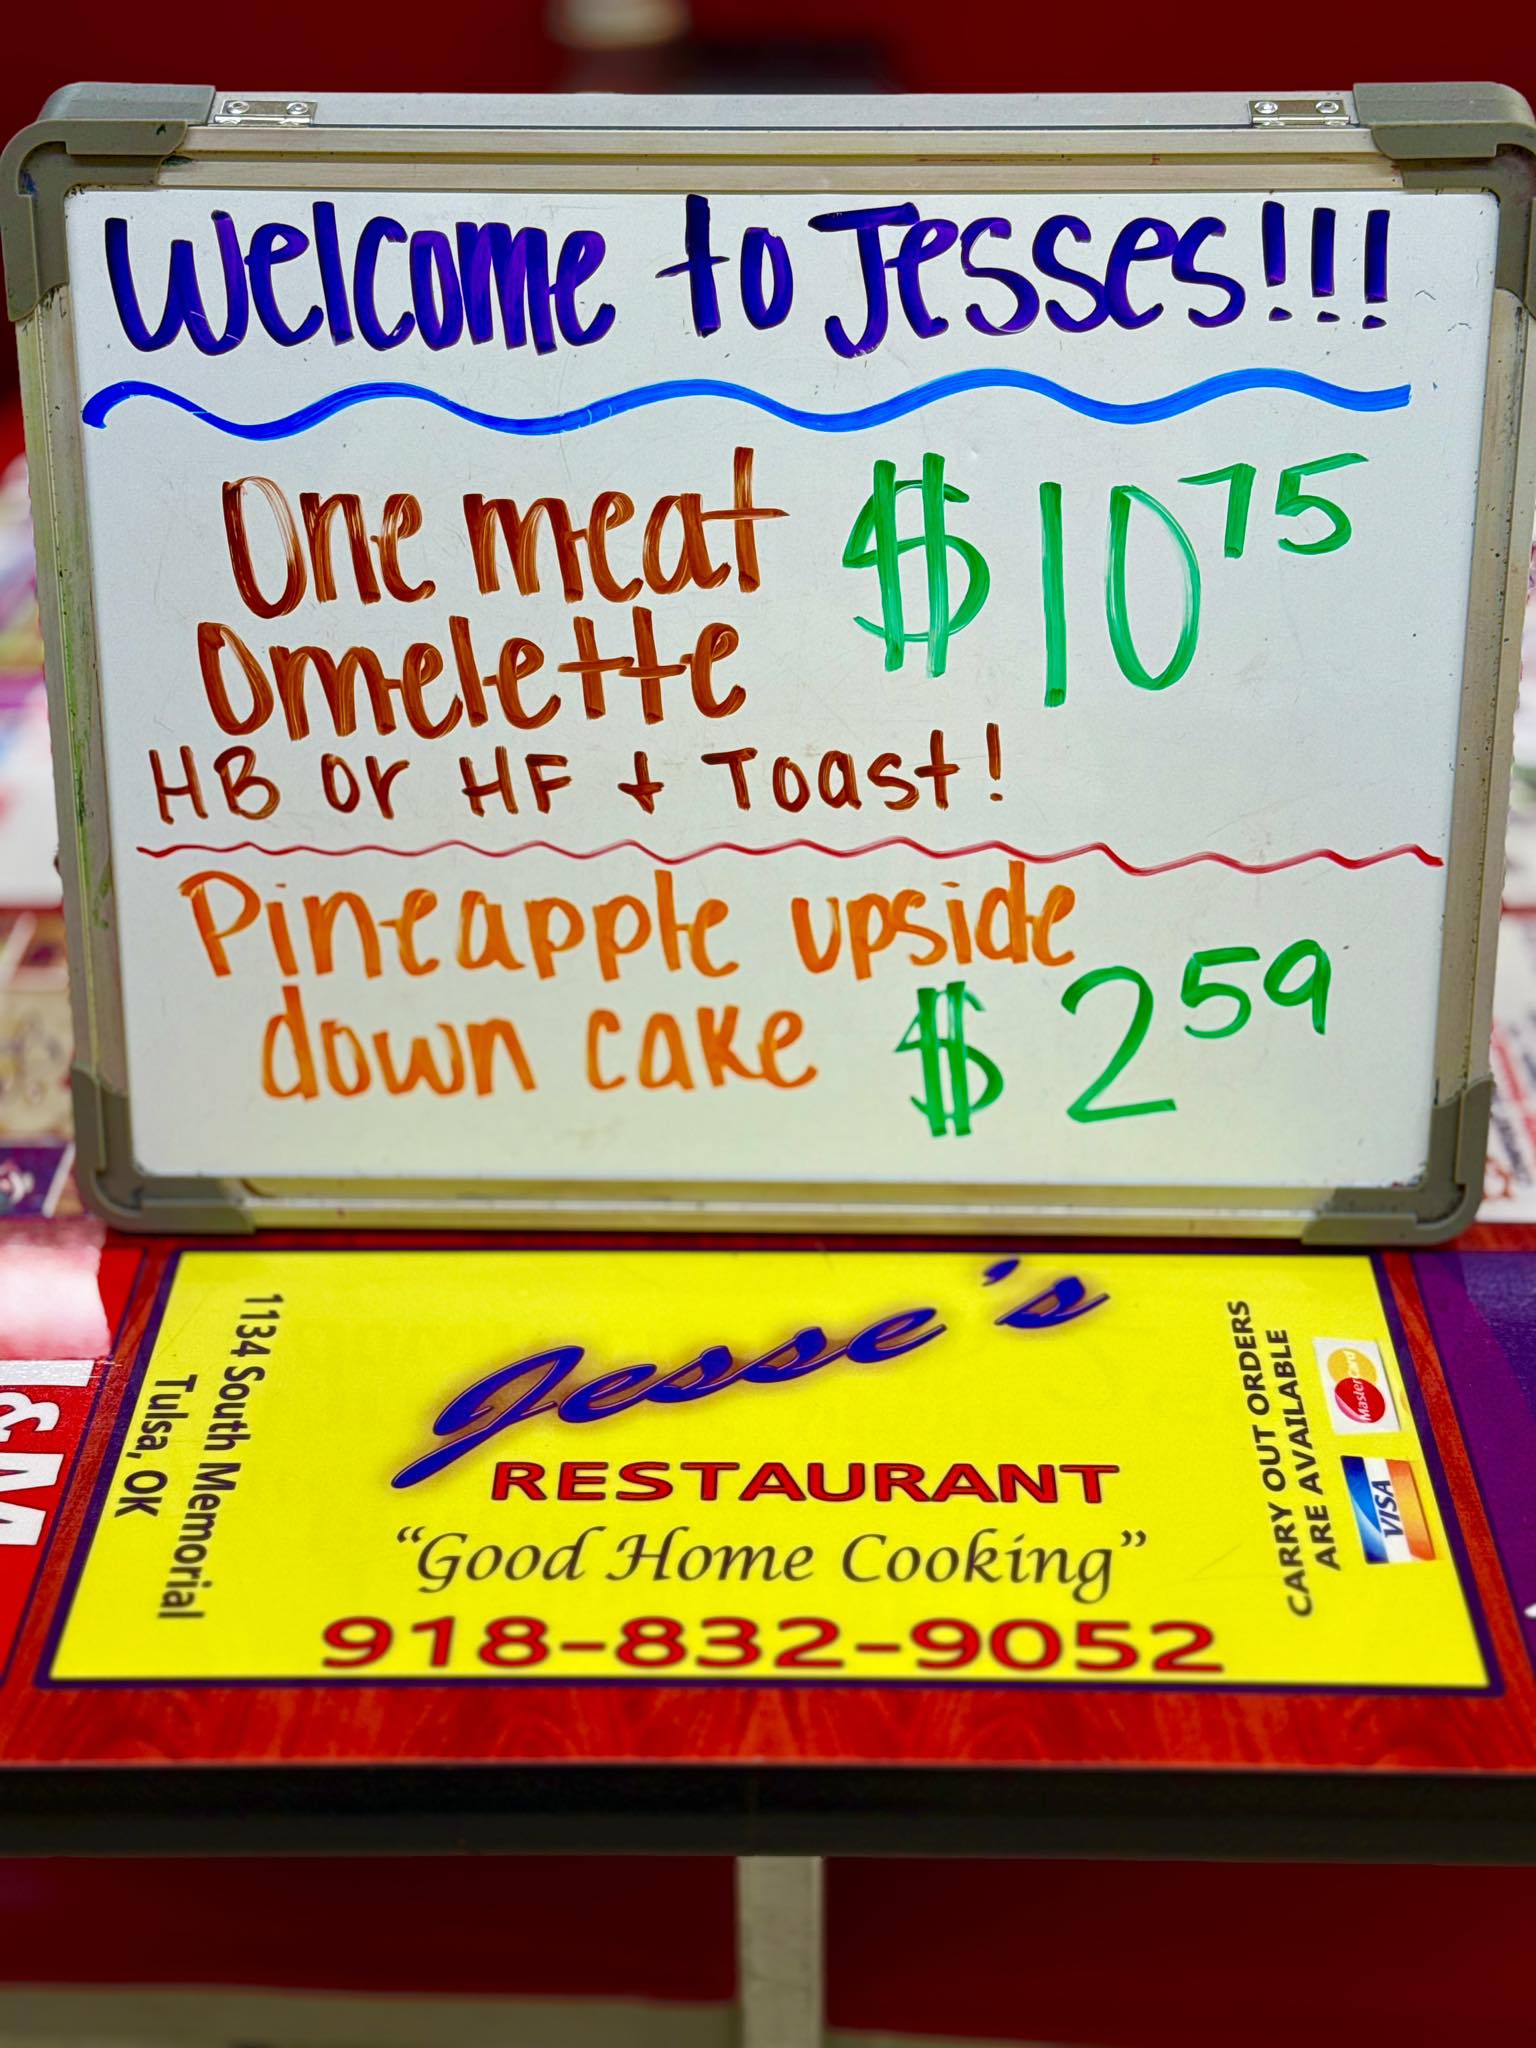 Welcome to Jesses!!!
One meat $10 75
Omelette
HB or HF + Toast!
Pineapple upside
down cake $2 59
Jesse's
RESTAURANT
"Good Home Cooking"
918-832-9052
1134 South Memorial
Tulsa, OK
CARRY OUT ORDERS
ARE AVAILABLE
MasterCard
VISA